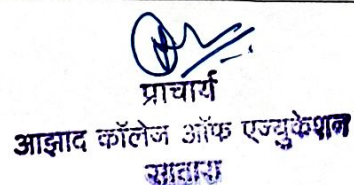 प्राचार्य
आझाद कॉलेज ऑफ एज्युकेशन
सातारा